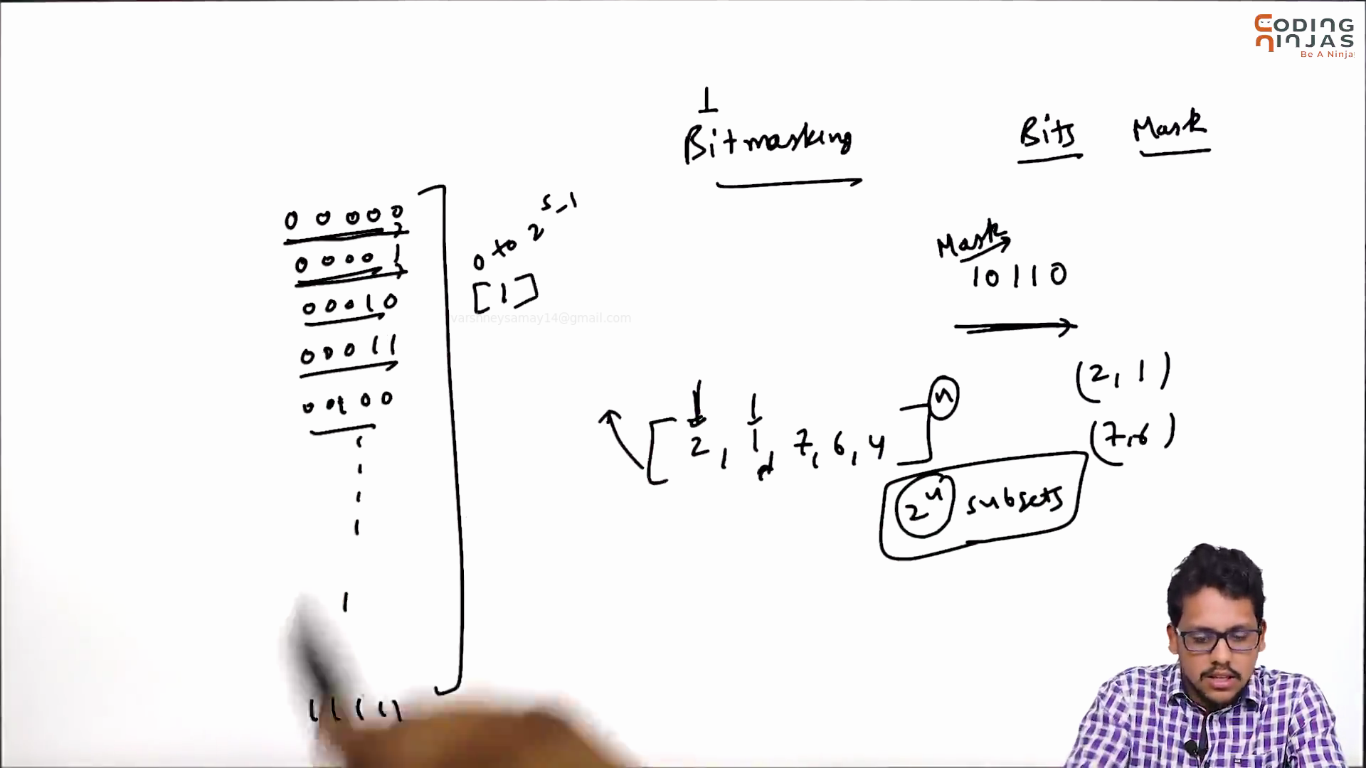 CODING
NINJAS
Be A Ninja
1
Bitmasking
Bits Mask
0 0 0 0 0
0 0 0 0 1
0 0 0 1 0
0 0 0 1 1
0 0 1 0 0
1 1 1 1 1
0 to 2^5-1
[1]
varshneysamay14@gmail.com
Mask
10110
[2, 1, 7, 6, 4] n
1 1
(2, 1)
(7,6)
2^n subsets